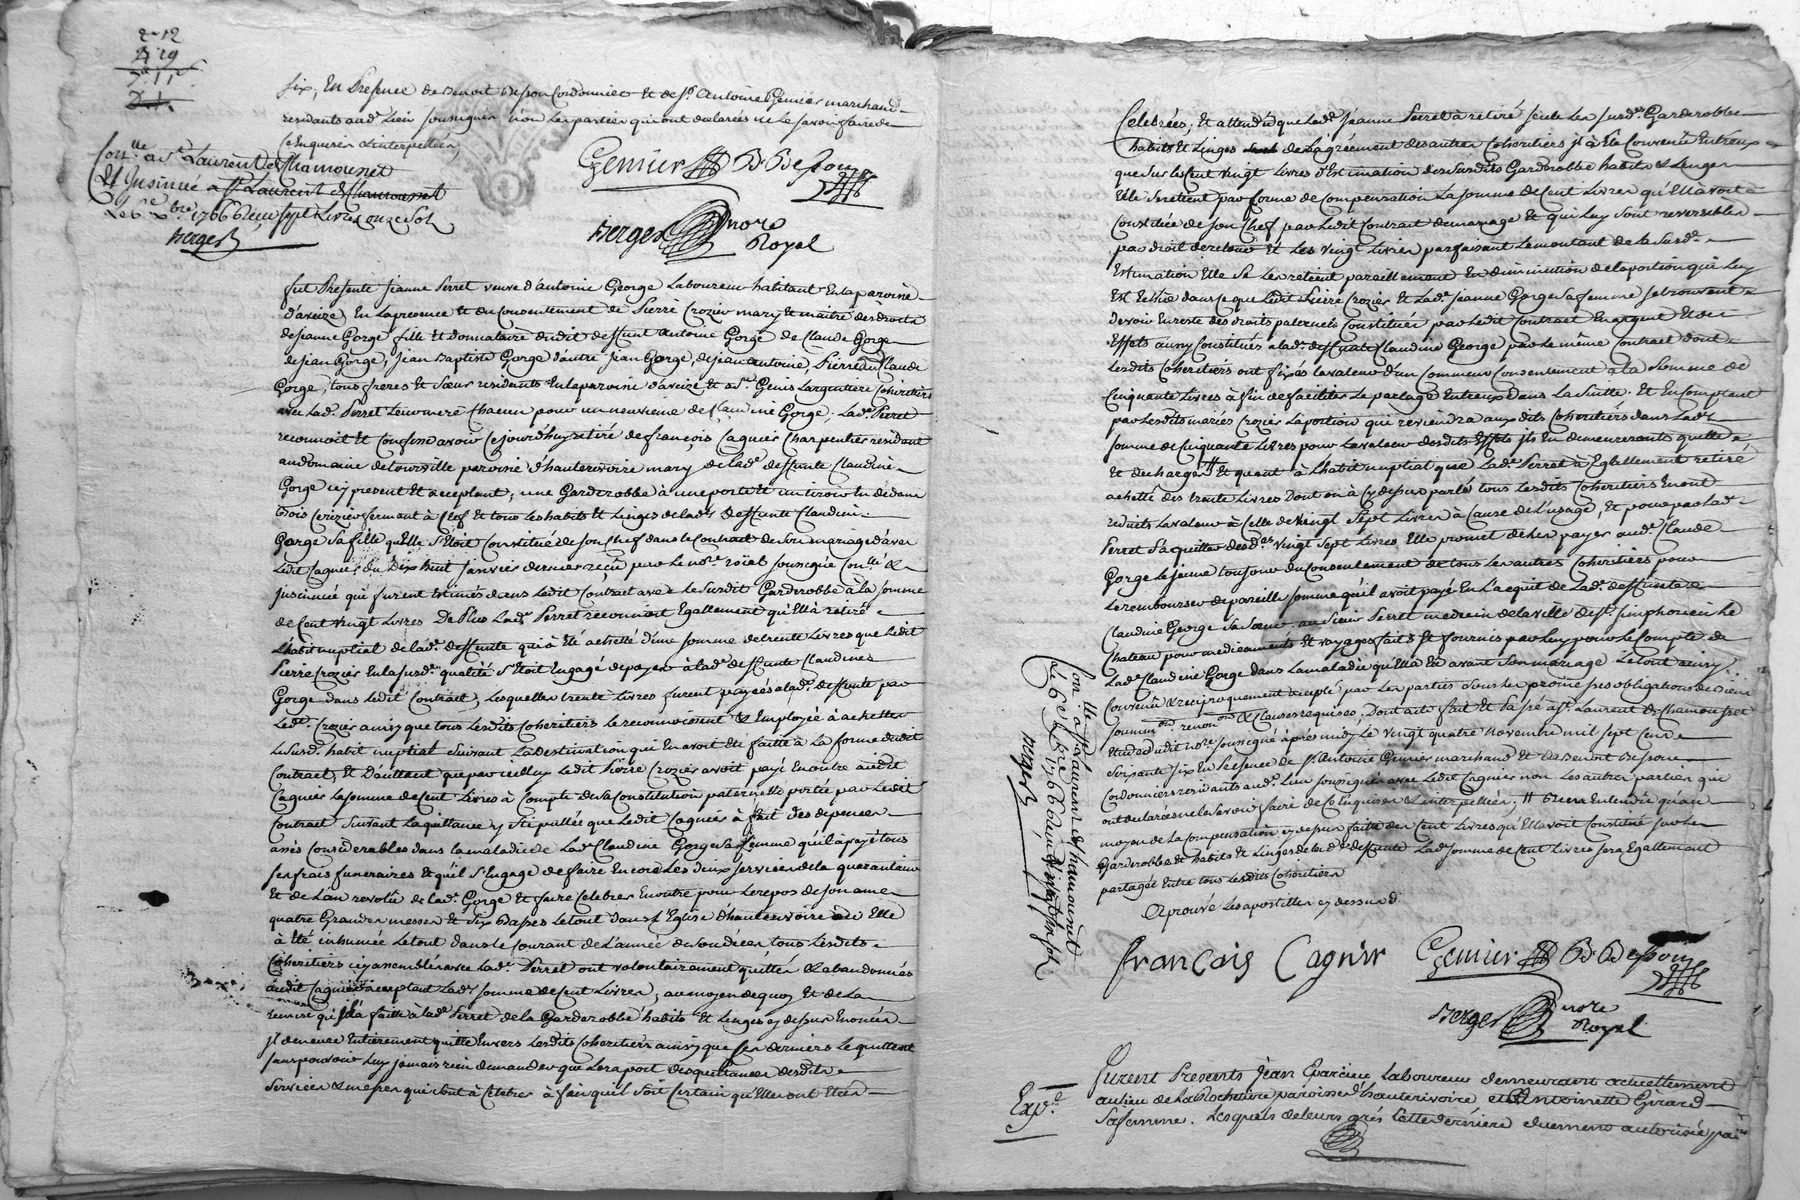 2 - 12
4 - 19
7 - 11
six, En Presence de Benoit Besson Cordonnier Et de Sr. Antoine Genier marchand
residants aud. Lieu soussignés non les parties qui ont declarées ne le savoir faire de
ce Enquises & interpellées,
Genier B. Besson
Berger nore
Royal
Con.lle à St. Laurent de Chamousset
Et Insinué a St. Laurent de Chamousset
Le 6e xbre 1766 Reçu sept Livres onze sols
Berger
fut Presente Jeanne Perret veuve d'antoine George Laboureur habitant En la paroisse
d'aveize, En la presence Et du Consentement de Pierre Crozier mary Et maitre des droits
de jeanne Gorge fille Et donnataire dudit deffunt antoine Gorge de Claude Gorge
de jean Gorge, Jean Baptiste Gorge d'autre Jean Gorge, de jean antoine, Pierre Claude
Gorge, tous freres Et sœurs residants En la paroisse d'aveize Et à St. Genis Largentiere Coheritiers
avec Lade. Perret Leur mere Chacun pour un neuvieme de Claudine Gorge, Lade. Perret
reconnoit Et Confesse avoir Cejourd'huy retiré de françois Cagnier Charpentier residant
au domaine de tourville paroisse d'hauterivoire mary de lade. deffunte Claudine
Gorge icy present Et acceptant, une Garderobbe à une porte Et un tiroir au dedans
bois Cerisier fermant à Clef Et tous les habits Et Linges de lade. deffunte Claudine
Gorge sa fille qu'elle s'étoit Constituée de son Chef dans le Contrat de son mariage d'avec
Ledit Cagnier du Dix huit janvier dernier reçu par Le nore. roial soussigné Con.llé &
Insinué qui furent Estimés dans Ledit Contrat avec Le susdit Garderobbe à la somme
de Cent vingt Livres De Plus Lade. Perret reconnoit Egallement qu'Ella retiré
L'habit nuptial de lade. deffunte qui a été achetté d'une somme de trente Livres que Ledit
Pierre Crozier En la susd. qualité s'Etoit Engagé de payer à lade. deffunte Claudine
Gorge dans Ledit Contrat, Lesquelles trente Livres furent payées à lade. deffunte par
Ledt. Crozier ainsy que tous Lesdits Coheritiers Le reconnoissent & Employée à achetter
Le susd. habit nuptial suivant La destination qui En avoit Eté faitte à La forme dudit
Contrat, Et D'autant que par icelluy Ledit Pierre Crozier avoit payé En outre audit
Cagnier La somme de Cent Livres à Compte de la Constitution paternelle portée par Ledit
Contrat suivant La quittance y stipullée que Ledit Cagnier à fait des depences
assés Considerables dans la maladie de Lade. Claudine Gorge sa femme qu'il a payé tous
ses frais funeraires Et qu'il s'Engage de faire Encore Les deux services de la quarantaine
Et de L'an revolu de lade. Gorge Et faire Celebrer En outre pour Le repos de son ame
quatre Grandes messes Et six Basses Le tout dans L'Eglise d'hauterivoire où Elle
à Eté inhumée Le tout dans le Courant de L'année de son décés tous Lesdits
Coheritiers icy assemblés avec Lade. Perret ont volontairement quittés & abandonnés
audit Cagnier acceptant Lade. somme de Cent Livres, au moyen de quoy Et de La
remise qu'il à faitte à lade. Perret de la Garderobbe habits Et Linges cy dessus Enoncés
jl demeure Entierement quitte Envers Lesdits Coheritiers ainsy que ses derniers Le quittent
sans pouvoir Luy jamais rien demander que Le raport des quittances desdits
services & messes qui sont à Celebrer à fin qu'il soit Certain qu'Elles ont Eteés
Celebrées; Et attendu que Lade. Jeanne Perret à retiré seule Les susdes. Garderobbe
habits Et Linges de L'agréement des autres Coheritiers jl à Eté Convenu Entreux
que sur Les Cent vingt Livres d'Estimation desdits Garderobbe habits & Linges
Elle se retient par forme de Compensation La somme de Cent Livres qu'Ella voit
Constituée de son Chef par Ledit Contrat de mariage Et qui Luy sont reversibles
par droit de retour Et Les vingt Livres parfaisant Le montant de la susde.
Estimation Elle se Les retient pareillement En diminution de la portion qui Luy
Est Echue dans ce que Ledit Pierre Crozier Et Lade. jeanne Gorge sa femme se trouvent
devoir En reste des droits paternels Constitués par Ledit Contrat En argent Et des
Effets aussy Constitués a lade. deffunte Claudine George par Le même Contrat dont
Lesdits Coheritiers ont fixés la valeur d'un Commun Consentement à la somme de
Cinquante Livres à fin de faciliter Le partage Entreux dans La suitte. Et En Comptant
par Lesdits mariés Crozier La portion qui reviendra auxdits Coheritiers dans Lade.
somme de Cinquante Livres pour La valeur desdits Effets jls En demeureront quittes
Et dechargés # Et quant à L'habit nuptial que Lade. Perret à Egallement retiré
achetté des trente Livres Dont on à Cy dessus parlé tous Lesdits Coheritiers En ont
reduits La valeur à Celle de vingt sept Livres à Cause de L'usage, Et pour par Lade.
Perret s'aquitter desdes. vingt sept Livres Elle promet de les payer aud. Claude
Gorge Le jeune toujour du Consentement de tous Les autres Coheritiers pour
Le rembourser de pareille somme qu'il avoit payé En L'acquit de Lade. deffunte
Claudine George sa sœur au sieur Perret medecin de la ville de St. simphorien Le
Chateau pour medicaments Et voyages faits Et fournis par Luy pour Le Compte de
Lade. Claudine Gorge dans La maladie qu'Ella Eu avant son mariage Le tout ainsy
Convenû & reciproquement accepté par Les parties sous Les promesses obligations de biens
soumions renonons & Clauses requises, Dont acte fait Et passé à St. Laurent de Chamousset
Etude dudit nore soussigné après midy Le vingt quatre novembre mil sept Cent
soixante six En Presence de Sr. Antoine Genier marchand Et de Benoit Besson
Cordonnier residants aud. Lieu soussignés avec Ledit Cagnier non Les autres parties qui
ont declarées ne le savoir faire de Ce Enquises & interpellées; # bien Entendû qu'au
moyen de La Compensation cy dessus faitte des Cent Livres qu'Ellavoit Constitué sur Les
Garderobbe Et habits Et Linges de lade. deffunte Lade. somme de Cent Livres sera Egallement
partagée Entre tous Lesdits Coheritiers
Aprouvé Les apostilles cy dessus
françois Cagnier Genier B. Besson
Berger nore
Royal
Con.lle à St. Laurent de Chamousset
Le 6e xbre 1766 Reçu
Berger
Exp.é
Furent Presents Jean Laboureur demeurant actuellement
au lieu de La Rochetiere paroisse d'hauterivoire et Antoinette Girard
sa femme. Lesquels de leurs grés Cette derniere duement autorisée par